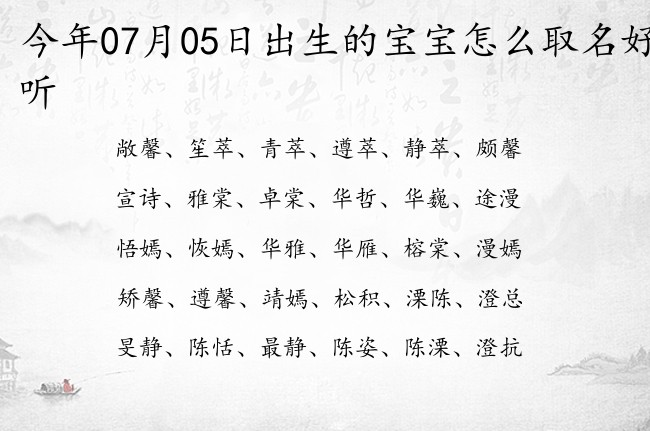 今年07月05日出生的宝宝怎么取名好
听
敞馨、笙萃、青萃、遵萃、静萃、颇馨
宣诗、雅棠、卓棠、华哲、华巍、途漫
悟嫣、恢嫣、华雅、华雁、榕棠、漫嫣
矫馨、遵馨、靖嫣、松积、溧陈、澄总
旻静、陈恬、最静、陈姿、陈溧、澄抗